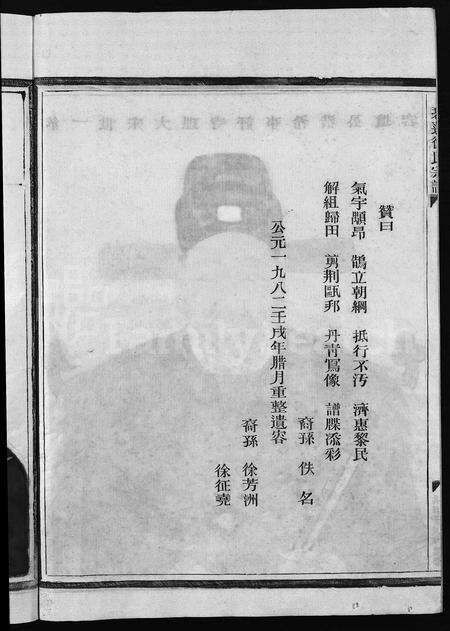 贊曰
氣宇顒昂 鵠立朝綱 抵行不汚 濟惠黎民
解組歸田 剪荆甌邦 丹青寫像 譜牒添彩
裔孫 佚名
公元一九八二壬戌年腊月重整遺容
裔孫 徐芳洲
徐征堯